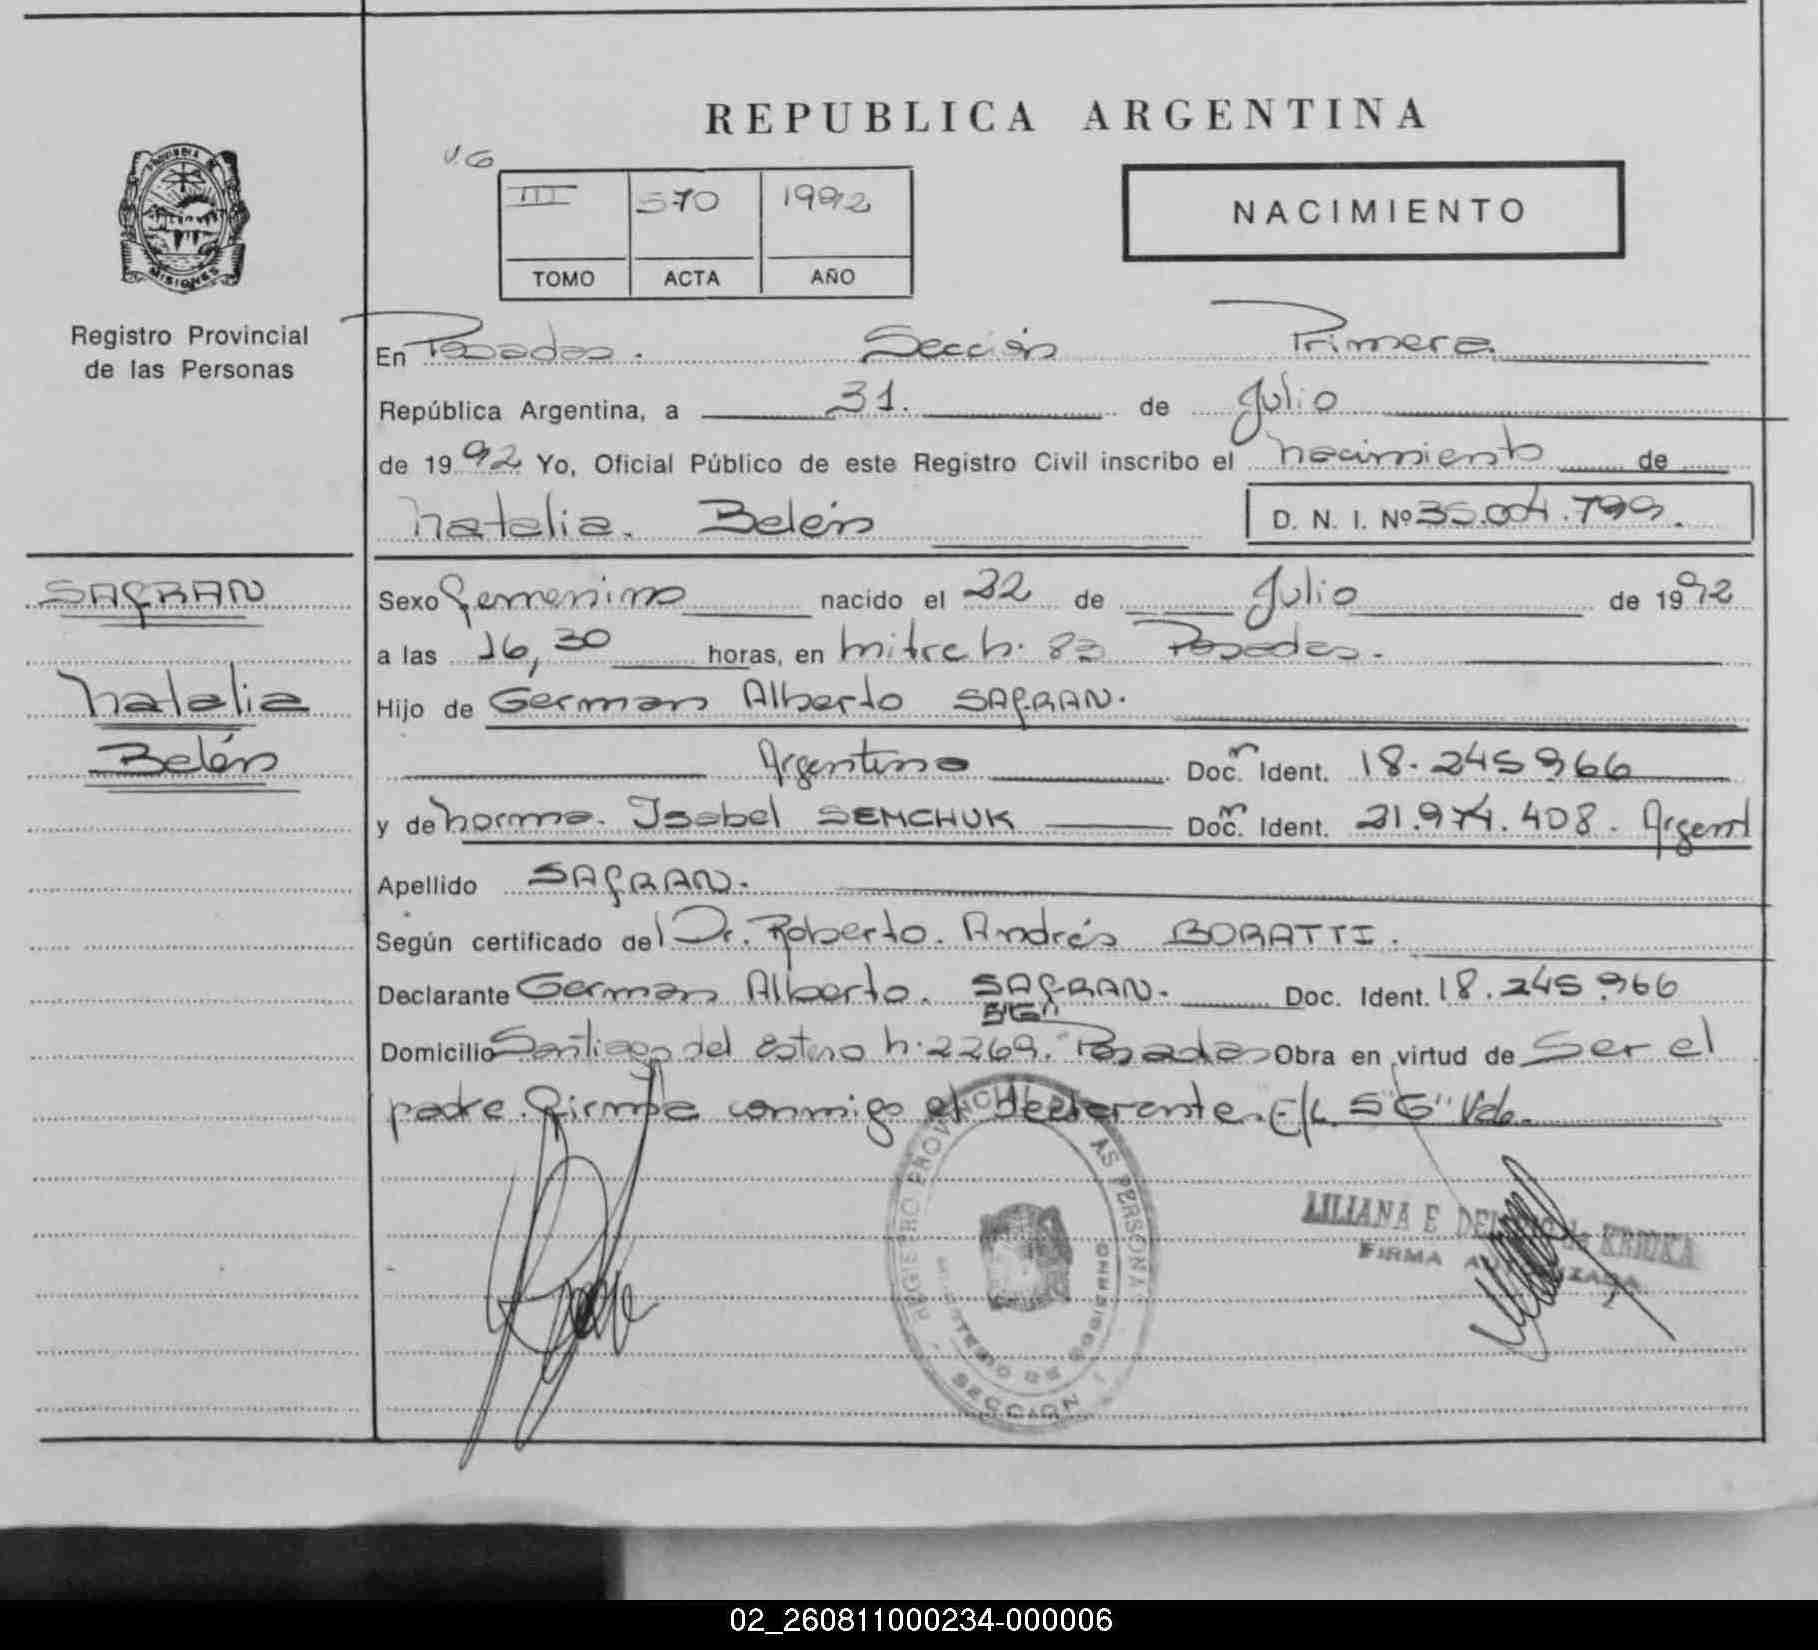 REPUBLICA ARGENTINA
PROVINCIA DE
MISIONES
Registro Provincial
de las Personas
V.G
III 570 1992
TOMO ACTA AÑO
NACIMIENTO
En Posadas. Sección Primera
República Argentina, a 31. de Julio
de 1992 Yo, Oficial Público de este Registro Civil inscribo el nacimiento de
Natalia. Belén D. N. I. Nº .004.799.
SAFRAN
Natalia
Belén
Sexo femenino nacido el 22 de Julio de 1992
a las 16,30 horas, en Mitre N. 83 Posadas.
Hijo de German Alberto SAFRAN.
Argentino Doc. Ident. 18.245966
y de Norma. Isabel SEMCHUK Doc. Ident. 21.974.408. Argent
Apellido SAFRAN.
Según certificado del Dr. Roberto. Andrés BORATTI.
Declarante German Alberto. SAFRAN. Doc. Ident. 18.245.966
"SG"
Domicilio Santiago del Estero N. 2269. Posadas Obra en virtud de Ser el
padre. Firma conmigo el declarante. E/L "SG" Vale.
REGISTRO PROVINCIAL AS PERSONAS
MINISTERIO DE GOBIERNO
SECCION
LILIANA E de KRIUKA
FIRMA AUTORIZADA
02_260811000234-000006